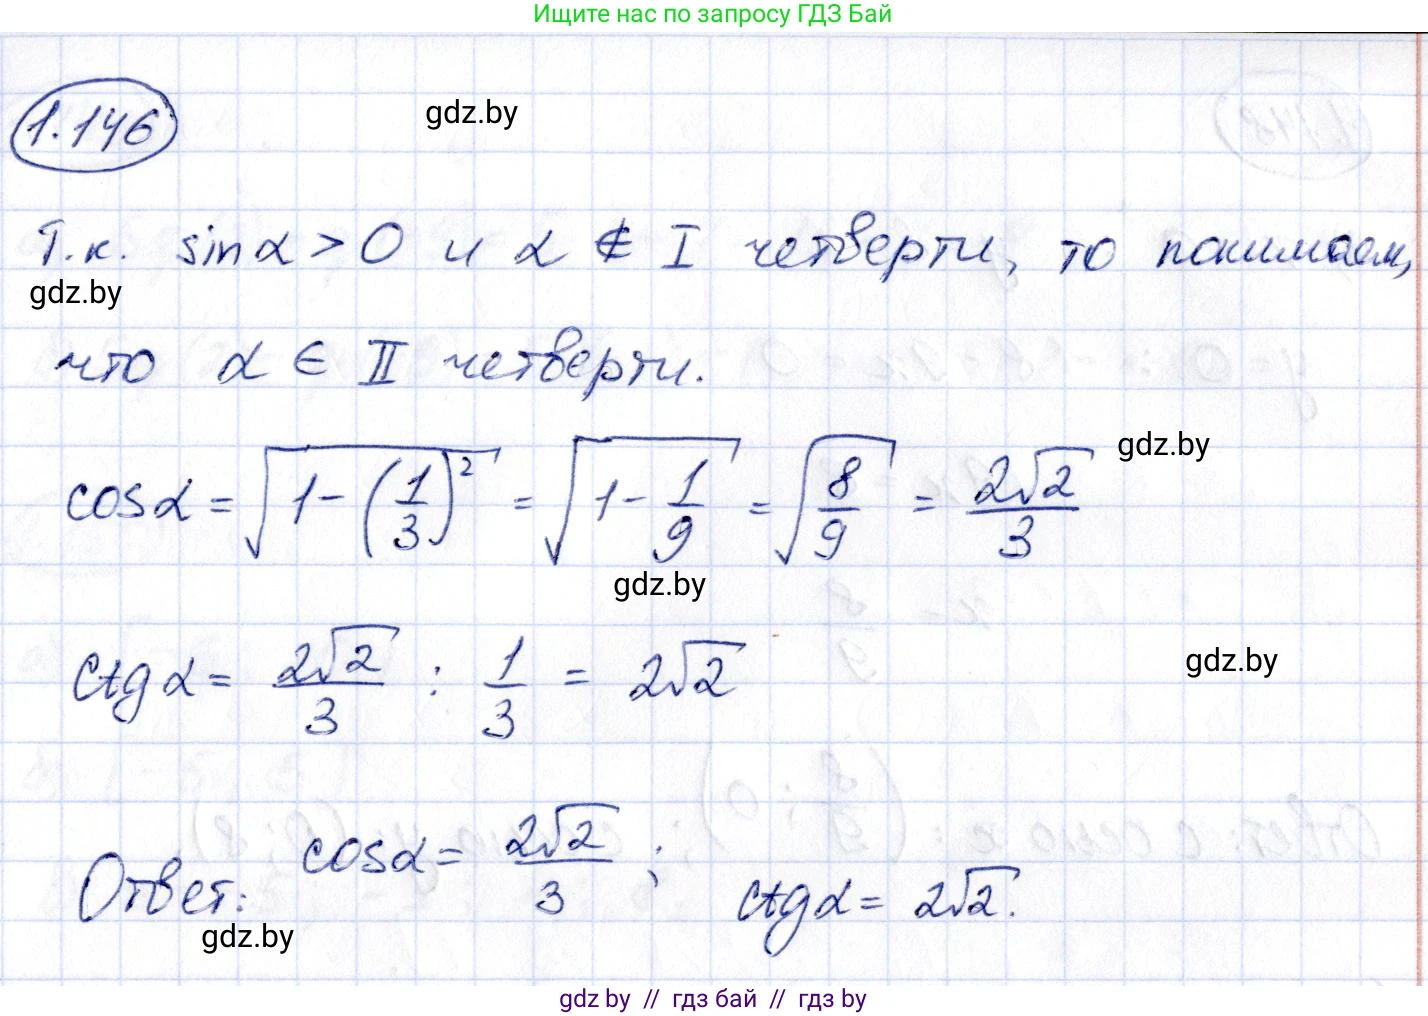 Ищите нас по запросу ГДЗ Бай
1.146
gdz.by
Т.к. sinα > 0 и α ∉ I четверти, то понимаем,
gdz.by
что α ∈ II четверти.
gdz.by
cosα = √(1 - (1/3)²) = √(1 - 1/9) = √(8/9) = 2√2/3
gdz.by
ctgα = 2√2/3 : 1/3 = 2√2
gdz.by
Ответ: cosα = 2√2/3 ; ctgα = 2√2.
gdz.by
gdz by // гдз бай // гдз by